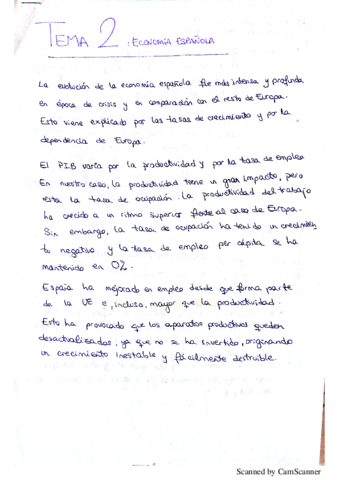 TEMA 2 : ECONOMÍA ESPAÑOLA
La evolución de la economía española fue más intensa y profunda
en época de crisis y en comparación con el resto de Europa.
Esto viene explicado por las tasas de crecimiento y por la
dependencia de Europa.
El PIB varía por la productividad y por la tasa de empleo
En nuestro caso, la productividad tiene un gran impacto, pero
resta la tasa de ocupación. La productividad del trabajo
ha crecido a un ritmo superior al caso de Europa.
Sin embargo, la tasa de ocupación ha tenido un crecimien
to negativo y la tasa de empleo per cápita se ha
mantenido en 0%.
España ha mejorado en empleo desde que forma parte
de la UE e, incluso, mayor que la productividad.
Esto ha provocado que los aparatos productivos queden
desactualizados, ya que no se ha invertido, originando
un crecimiento inestable y fácilmente destruible.
Scanned by CamScanner